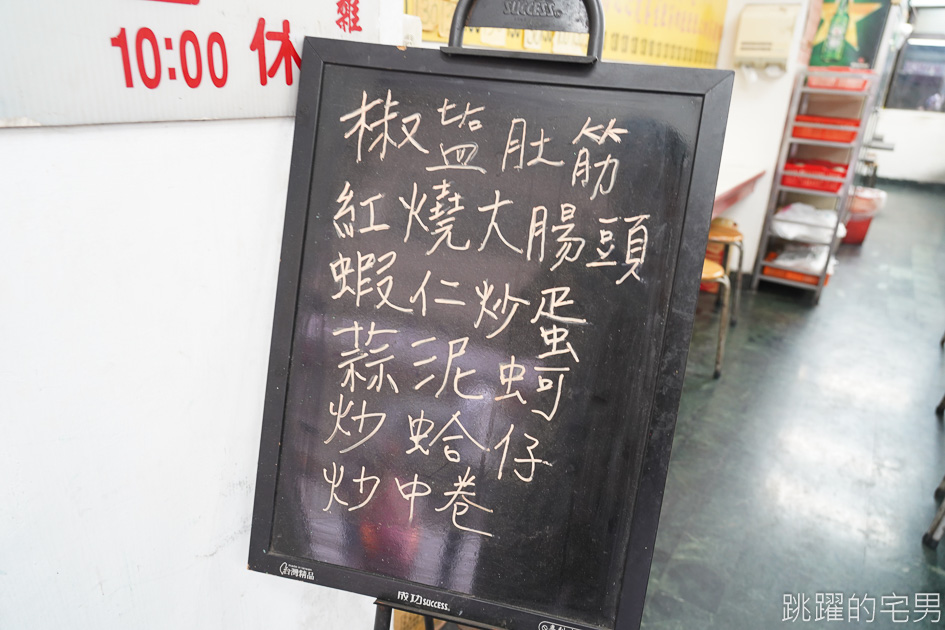 SUCCESS
10:00 休
椒塩肚筋
紅燒大腸頭
蝦仁炒蛋
蒜泥蚵
炒蛤仔
炒中卷
台灣精品
成功 SUCCESS
跳躍的宅男